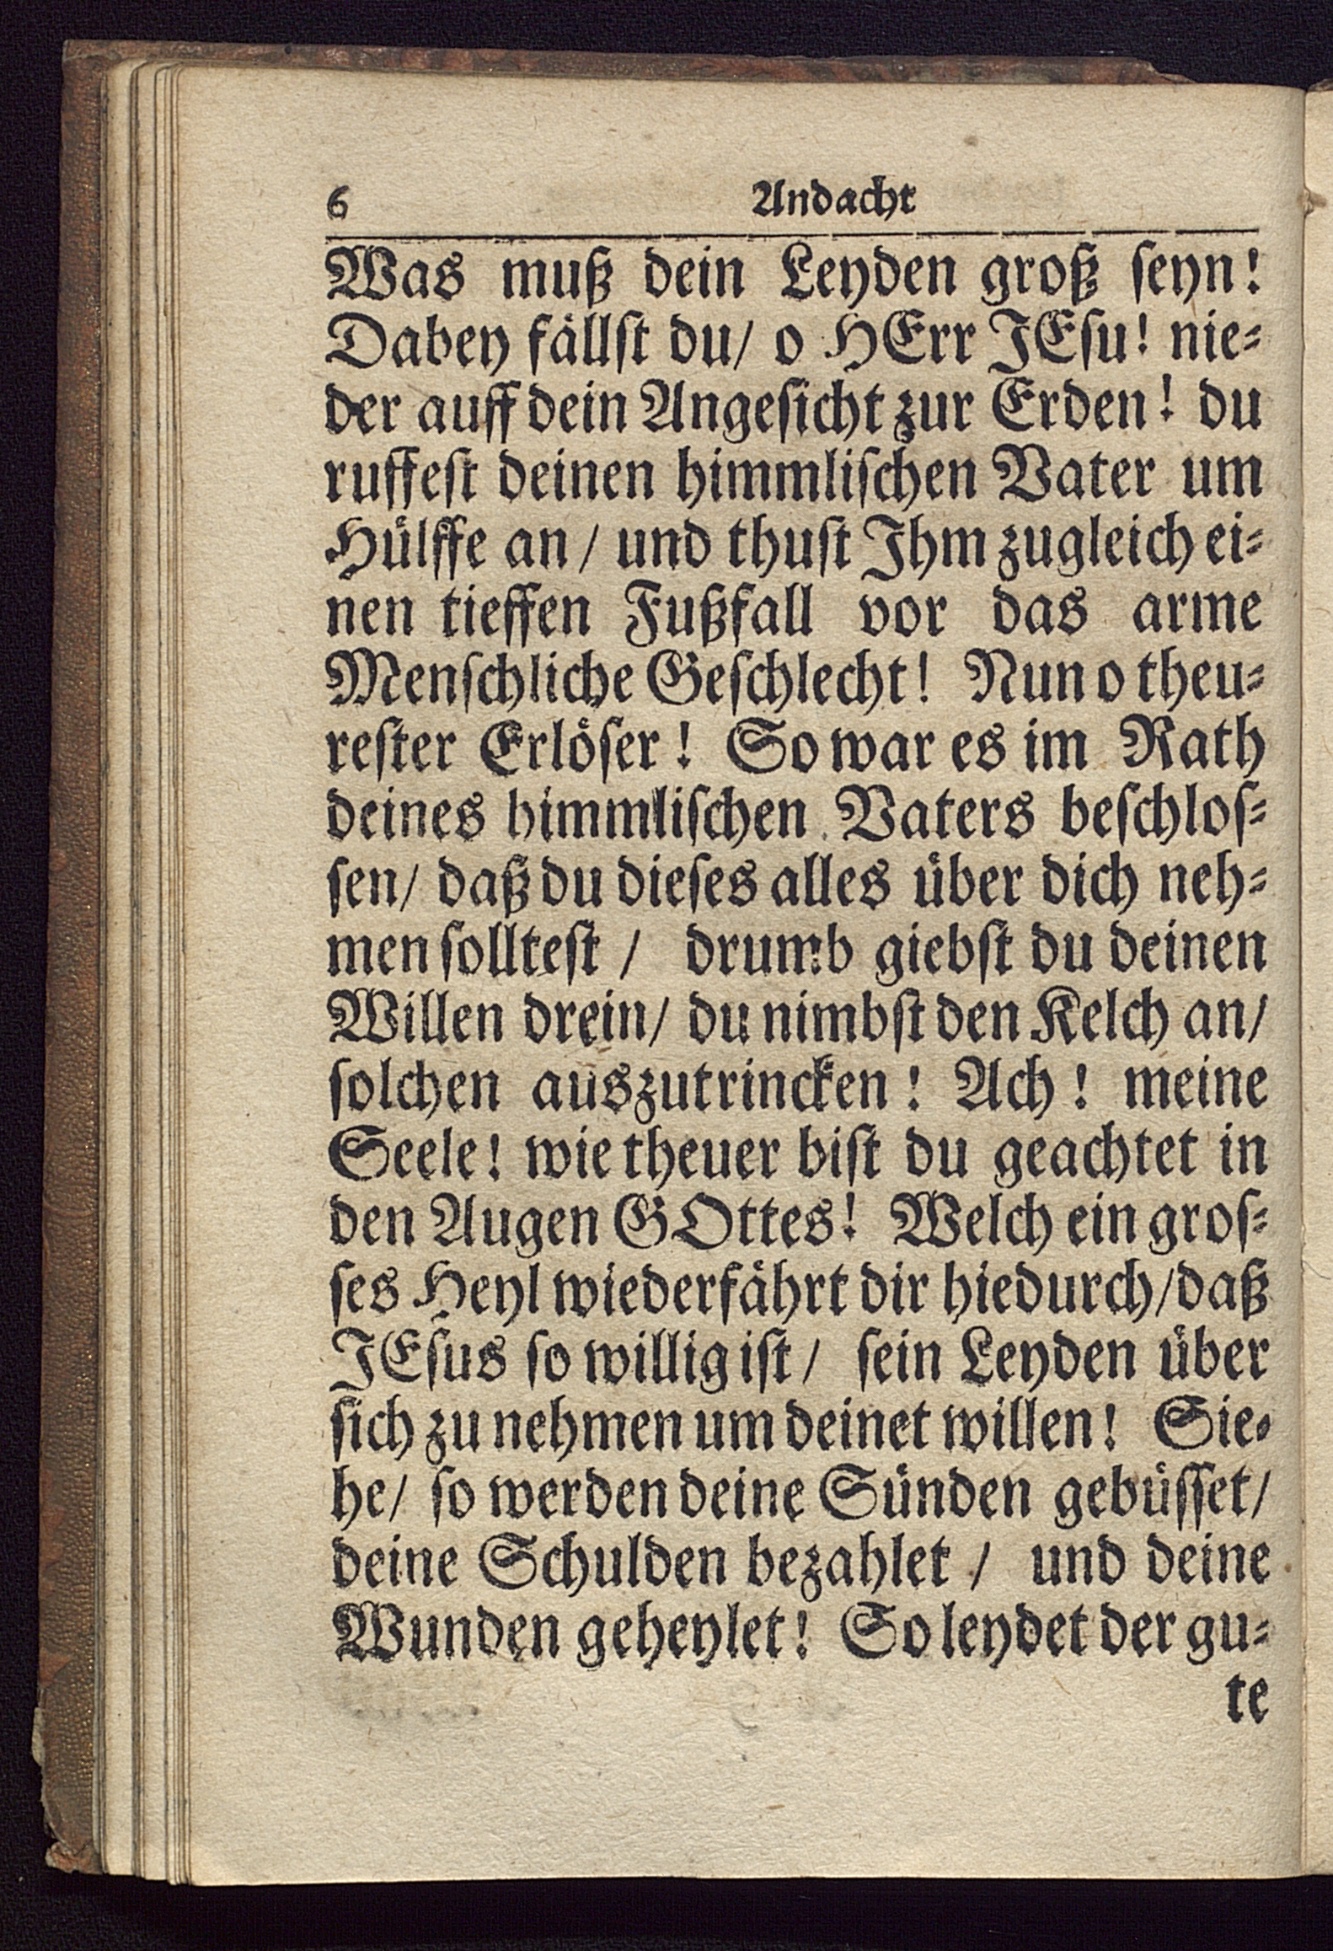 6 Andacht
Was muß dein Leyden groß ſeyn!
Dabey fällſt du/ o HErr JEſu! nie⸗
der auff dein Angeſicht zur Erden! du
ruffeſt deinen himmliſchen Vater um
Hülffe an / und thuſt Ihm zugleich ei⸗
nen tieffen Fußfall vor das arme
Menſchliche Geſchlecht! Nun o theu⸗
reſter Erlöſer! So war es im Rath
deines himmliſchen Vaters beſchloſ⸗
ſen/ daß du dieſes alles über dich neh⸗
men ſollteſt / drumb giebſt du deinen
Willen drein/ du nimbſt den Kelch an/
ſolchen auszutrincken! Ach! meine
Seele! wie theuer biſt du geachtet in
den Augen GOttes! Welch ein groſ⸗
ſes Heyl wiederfährt dir hiedurch/daß
JEſus ſo willig iſt/ ſein Leyden über
ſich zu nehmen um deinet willen! Sie⸗
he/ ſo werden deine Sünden gebüſſet/
deine Schulden bezahlet / und deine
Wunden geheylet! So leydet der gu⸗
te